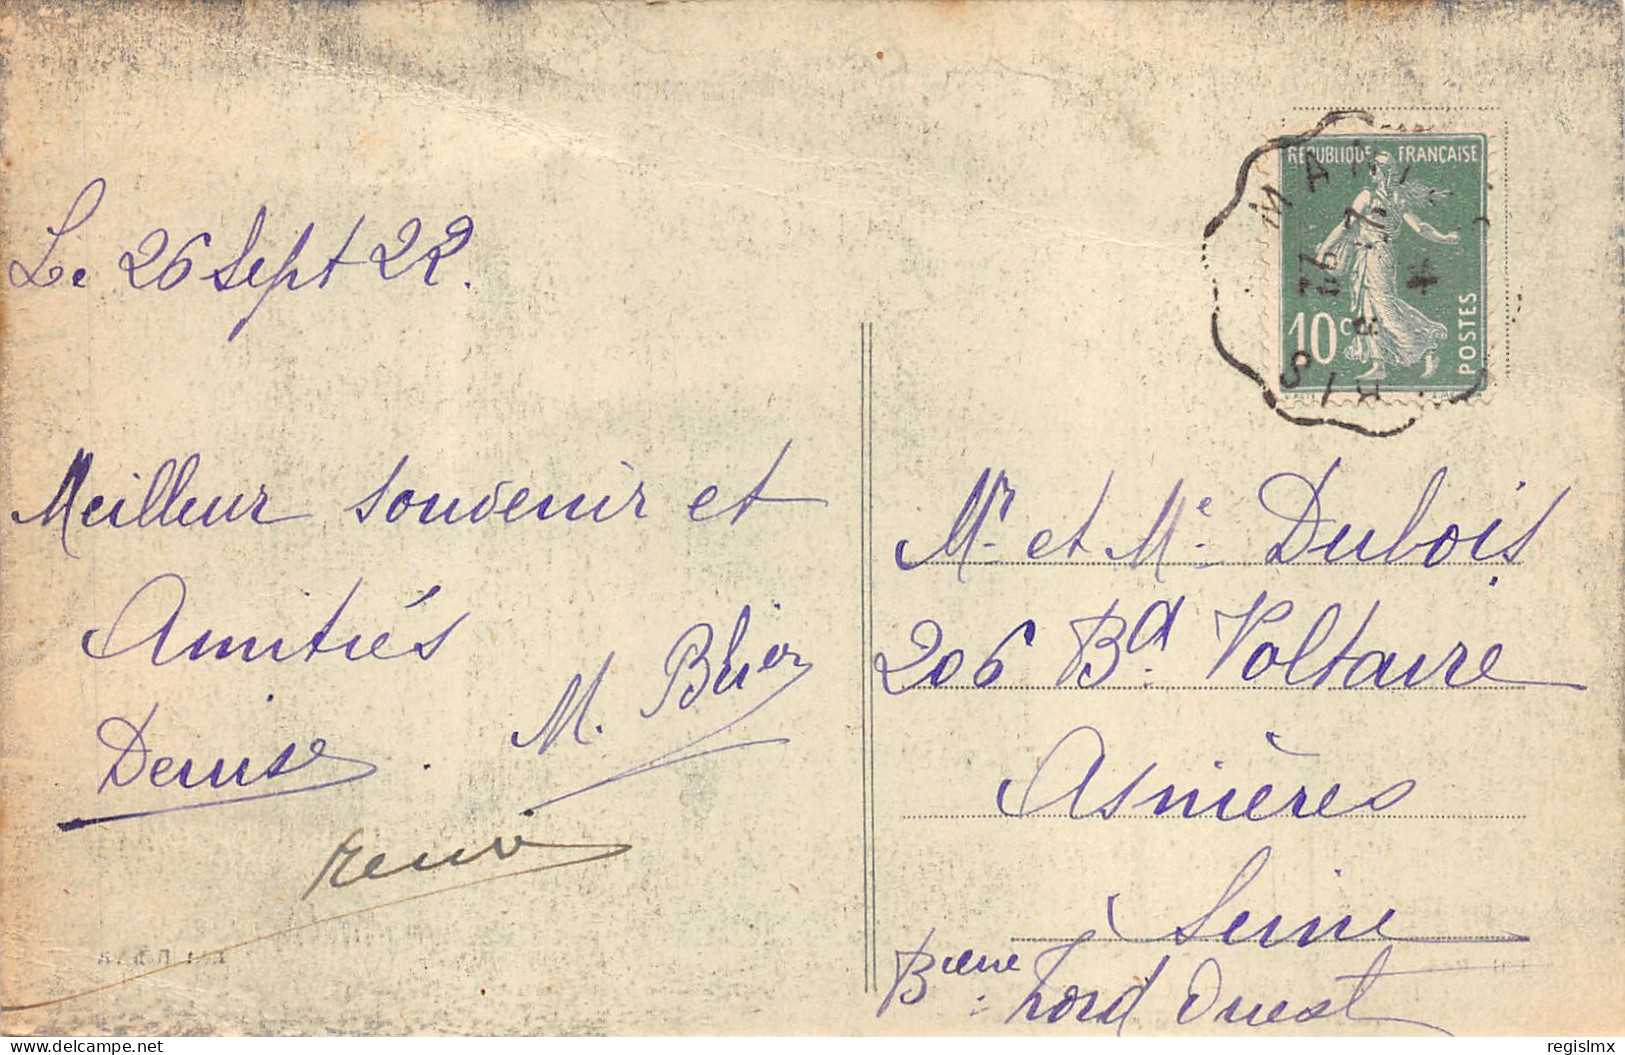 Le 26 Sept 22.
Meilleur souvenir et
Amitiés
Denise. M. Blier
René
REPUBLIQUE FRANÇAISE
10c
POSTES
Mr et Me Dubois
206 Bd Voltaire
Asnières
Seine
Bécon
Nord Ouest
delcampe.net
regislmx